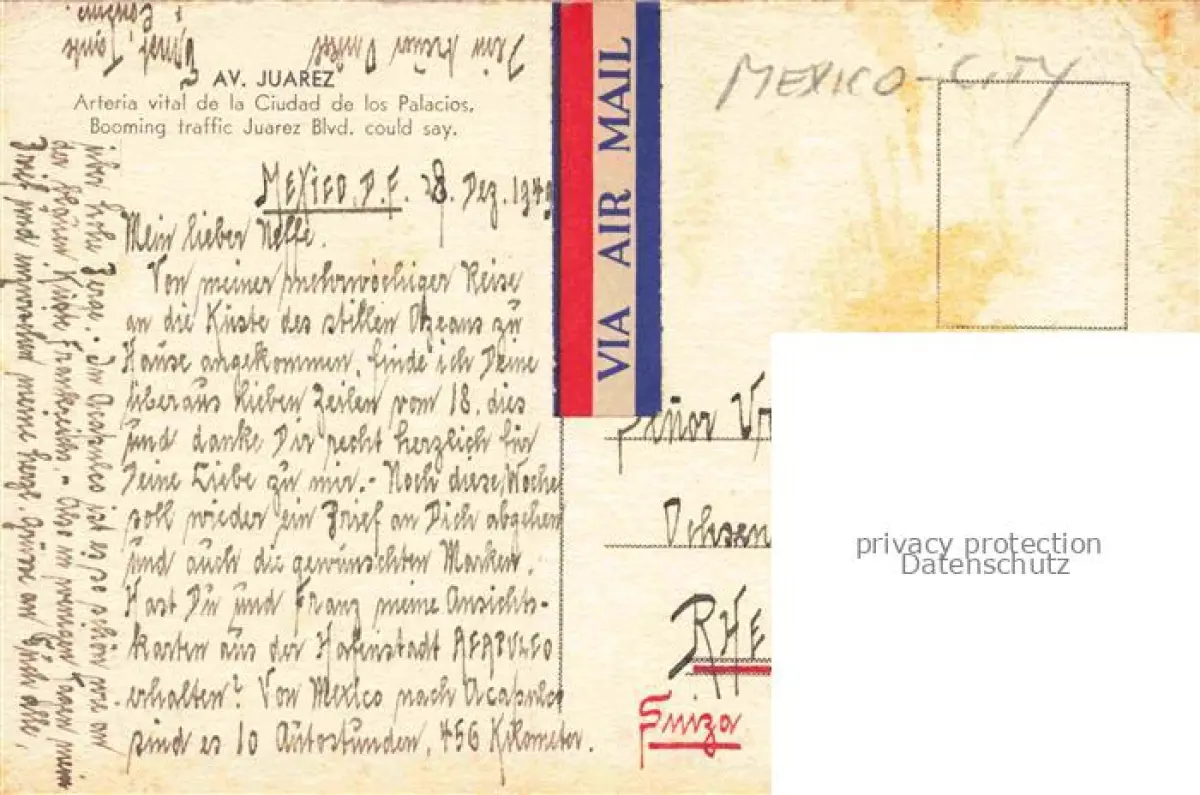 AV. JUAREZ
Arteria vital de la Ciudad de los Palacios,
Booming traffic Juarez Blvd. could say.
MEXICO, D.F. 28. Dez. 1949
Mein lieber Neffe.
Von meiner mehrwöchiger Reise
an die Küste des stillen Ozeans zu
Hause angekommen, finde ich Deine
überaus lieben Zeilen vom 18. dies
und danke Dir recht herzlich für
Deine Liebe zu mir.- Noch diese Woche
soll wieder ein Brief an Dich abgehen
und auch die gewünschten Marken.
Hast Du und Franz meine Ansichts-
karten aus der Hafenstadt ACAPULCO
erhalten? Von Mexico nach Acapulco
sind es 10 Autostunden, 456 Kilometer.
über hohe Berge. In Acapulco ist es so schön wie an
der blauen Küste Frankreichs. - Also in wenigen Tagen mein
Brief und inzwischen meine herzl. Grüsse an Euch alle,
Dein
Onkel
VIA AIR MAIL
MEXICO-CITY
Señor
Ochsen
RHE
Suiza
privacy protection
Datenschutz